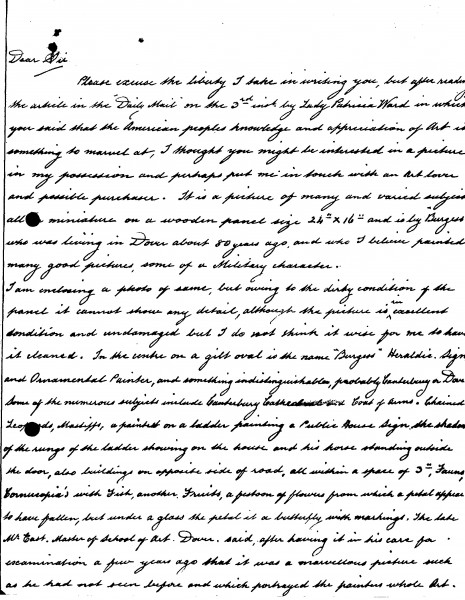 Dear Sir
Please excuse the liberty I take in writing you, but after reading
the article in the "Daily Mail" on the 3rd inst by Lady Patricia Ward in which
you said that the American peoples knowledge and appreciation of Art is
something to marvel at, I thought you might be interested in a picture
in my possession and perhaps put me in touch with an Art lover
and possible purchaser. It is a picture of many and varied subjects
all miniature on a wooden panel size 24" x 16" and is by "Burgess"
who was living in Dover about 80 years ago, and who I believe painted
many good pictures, some of a Military character.
I am enclosing a photo of same, but owing to the dirty condition of the
panel it cannot show any detail, although the picture is in excellent
condition and undamaged but I do not think it wise for me to have
it cleaned. In the centre on a gilt oval is the name "Burgess" Heraldic. Sign
and Ornamental Painter, and something indistinguishable, probably Canterbury or Dover
Some of the numerous subjects include Canterbury Coat of Arms. Chained
Leopards, Mastiffs, a painter on a ladder painting a Public House Sign the shadow
of the rungs of the ladder showing on the house and his horse standing outside
the door, also buildings on opposite side of road, all within a space of 3", Fauns,
Cornucopia's with Fish, another, Fruits, a festoon of flowers from which a petal appears
to have fallen, but under a glass the petal is a butterfly with markings. The late
Mr East, Master of School of Art. Dover. said, after having it in his care for
examination a few years ago that it was a marvellous picture such
as he had not seen before and which portrayed the painters whole Art.